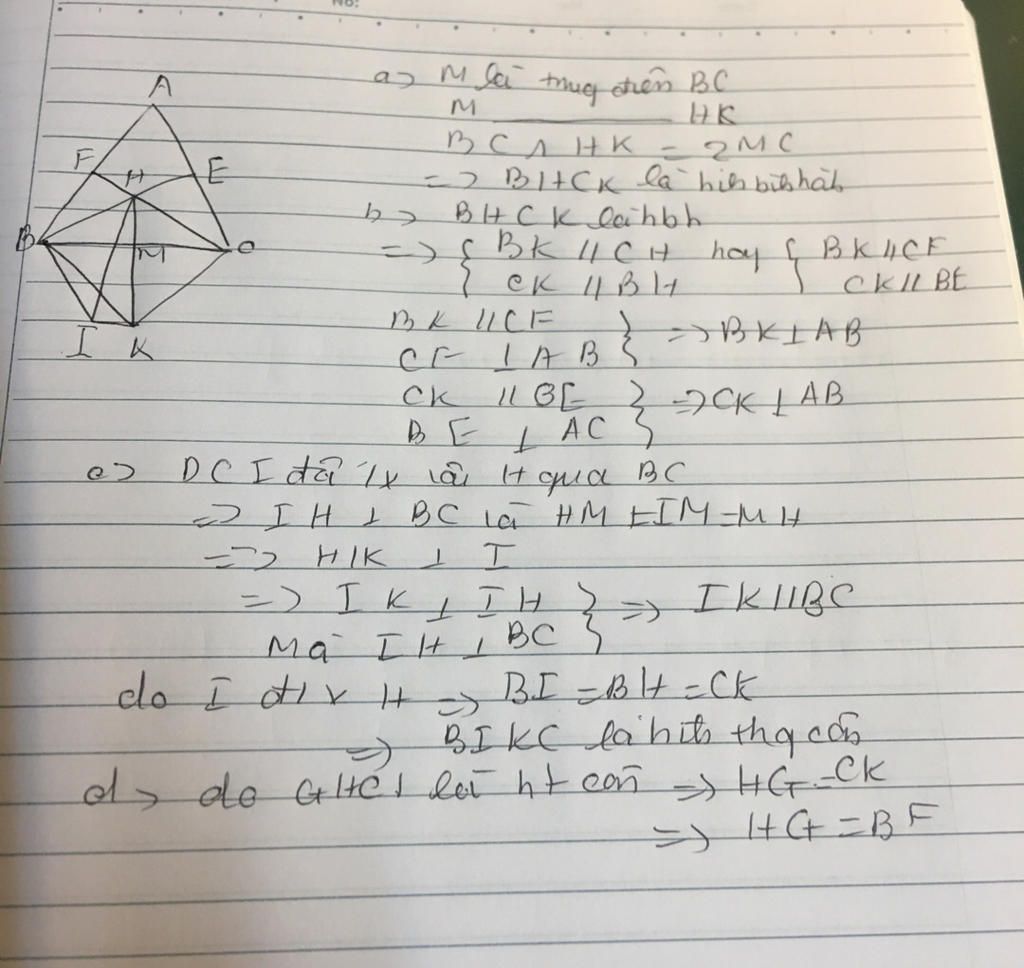 No:
A
F H E
B M C
I K
a> M là trung điểm BC
M ________ HK
BC ∧ HK = 2MC
=> BHCK là hình bình hành
b> BHCK là hbh
=> { BK // CH hay { BK // CF
{ CK // BH { CK // BE
BK // CF } => BK ⊥ AB
CF ⊥ AB }
CK // BE } => CK ⊥ AB
BE ⊥ AC }
c> DC I đối x H qua BC
=> IH ⊥ BC là HM = IM = MH
=> HIK ⊥ I
=> IK ⊥ IH } => IK // BC
Mà IH ⊥ BC }
do I đ/x H => BI = BH = CK
=> BIKC là hình thg cân
d> do GHCI là ht cân => HG = CK
=> HG = BF